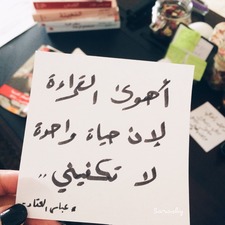 أهوى القراءة
لإن حياة واحدة
لا تكفيني ..
* عباس العقاد